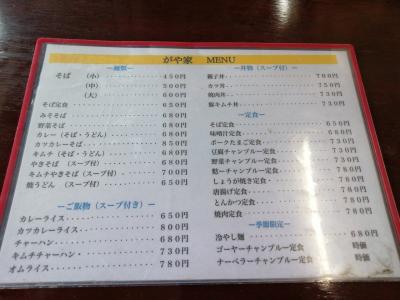 がや家 MENU
ー麺類ー
そば (小) 450円
(中) 500円
(大) 600円
そば定食 650円
みそそば 680円
野菜そば 680円
カレー(そば・うどん) 680円
カツカレーそば 850円
キムチ(そば・うどん) 680円
やきそば (スープ付) 680円
キムチやきそば(スープ付) 700円
焼うどん (スープ付) 650円
ーご飯物(スープ付き)ー
カレーライス 650円
カツカレーライス 800円
チャーハン 680円
キムチチャーハン 730円
オムライス 780円
ー丼物(スープ付)ー
親子丼 700円
カツ丼 750円
焼肉丼 730円
豚キムチ丼 730円
ー定食ー
そば定食 650円
味噌汁定食 680円
ポークたまご定食 680円
豆腐チャンプルー定食 730円
野菜チャンプルー定食 730円
麩ーチャンプルー定食 730円
しょうが焼き定食 780円
唐揚げ定食 780円
とんかつ定食 780円
焼肉定食 780円
ー季節限定ー
冷やし麺 680円
ゴーヤーチャンプルー定食 時価
ナーベラーチャンプルー定食 時価